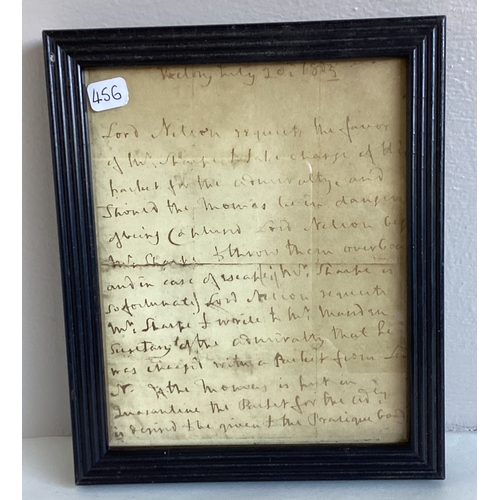 456
Victory July 20, 1803
Lord Nelson requests the favor
of Mr. Sharpe to take charge of
packet for the admiralty, and
Should the Thomas be in danger
of being Captured Lord Nelson beg
Mr. Sharpe to throw them overboa
and in case of escape if Mr. Sharpe is
so fortunate Lord Nelson requests
Mr. Sharpe to write to Mr. Marsden
Secretary of the admiralty that he
was charg'd with a Packet from Lo
N. If the Thomas is put in
Quarantine the Packet for the ad:ty
is desired to be given to the Pratique boat